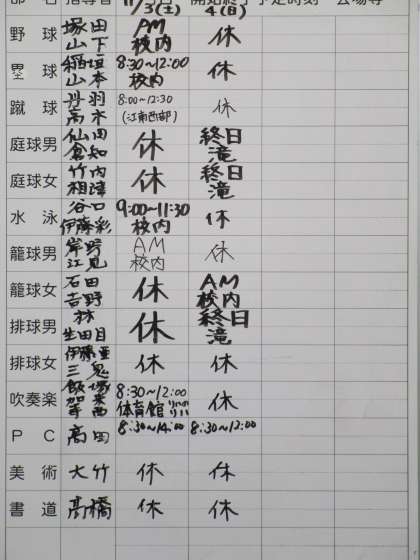 11/3(土) 4(日)
野球 塚田 山下 AM 校内 休
塁球 稲垣 山本 8:30~12:00 校内 休
蹴球 丹羽 高木 8:00~12:30 (江南西部) 休
庭球男 仙田 倉知 休 終日 滝
庭球女 竹内 相津 休 終日 滝
水泳 谷口 伊藤彩 9:00~11:30 校内 休
籠球男 岸野 江見 AM 校内 休
籠球女 石田 吉野 休 AM 校内
排球男 林 生田目 休 終日 滝
排球女 伊藤亜 三鬼 休 休
吹奏楽 飯場 賀来 寺西 8:30~12:00 体育館 休
PC 高田 8:30~14:00 8:30~12:00
美術 大竹 休 休
書道 高橋 休 休